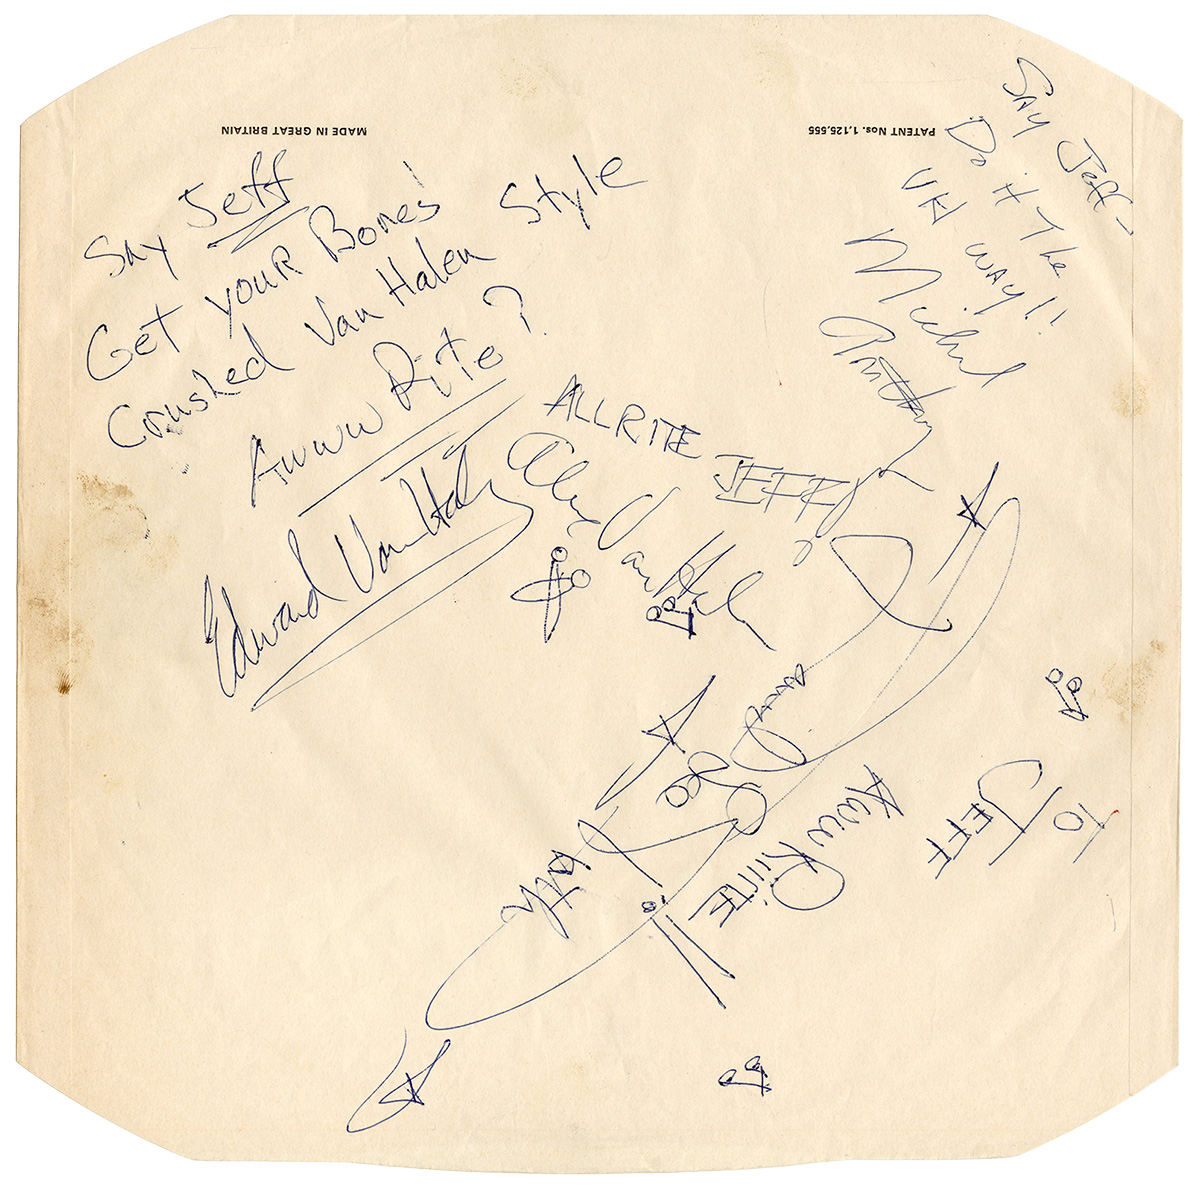 MADE IN GREAT BRITAIN
PATENT Nos. 1,125,555
Say Jeff
Get your Bones!
Crushed Van Halen Style
Awww Rite?
Edward Van Halen
SAY Jeff-
Do it The
VH WAY!!
Michael
Anthony
ALLRITE JEFF!
Alex Van Halen
TO
JEFF
Aww Riiite!!